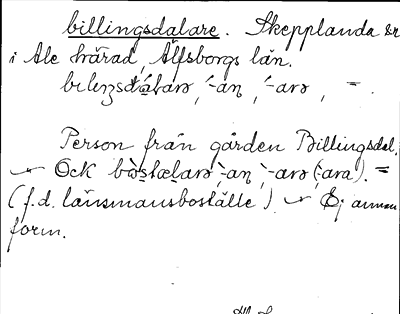 billingsdalare. Skepplanda sn
i Ale härad, Älfsborgs län.
-an, -arə, =.
Person från gården Billingsdal.
Ock -an, -arə (-ara). =
(f.d. länsmansboställe) Ej annan
form.